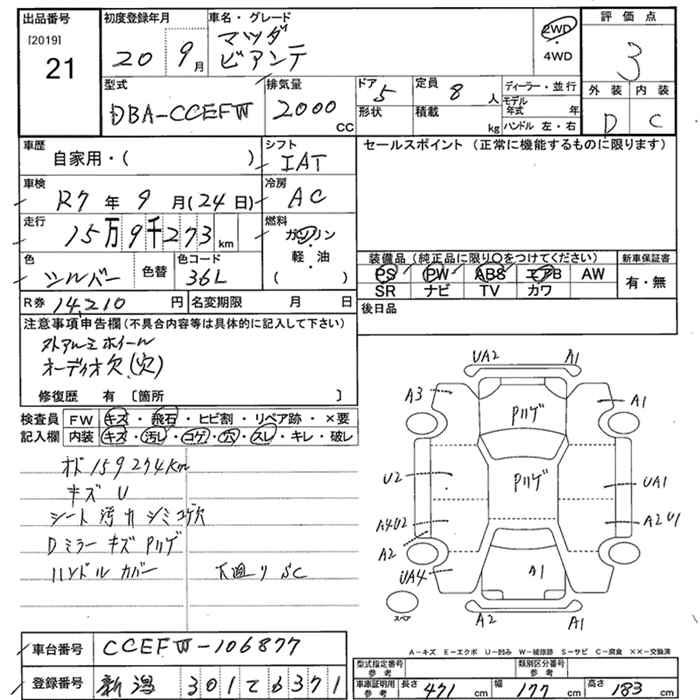 出品番号 初度登録年月 車名・グレード 評価点
[2019] マツダ 2WD
21 20 9月 ビアンテ 4WD 3
型式 排気量 ドア 定員 ディーラー・並行 外装 内装
DBA-CCEFW 2000 CC 5 8人 モデル年式 年 D C
形状 積載 kg ハンドル 左・右
車歴 シフト セールスポイント (正常に機能するものに限ります)
自家用・( ) IAT
車検 冷房
R7年9月(24日) AC
走行 燃料
15万9千273km ガソリン
軽・油
( )
色 色替 色コード 装備品 (純正品に限り〇をつけてください) 新車保証書
シルバー 36L PS PW ABS エアB AW 有・無
SR ナビ TV カワ
R券 14,210円 名変期限 月 日 後日品
注意事項申告欄 (不具合内容等は具体的に記入して下さい)
外アルミホイール
オーディオ欠(穴)
修復歴 有 〔箇所 〕
検査員 FW キズ・飛石・ヒビ割・リペア跡・×要
記入欄 内装 キズ・汚レ・コゲ・穴・スレ・キレ・破レ
オド159274km
キズ U
シート 汚 カ シミ コゲ穴
Dミラー キズ Pハゲ
ハンドル カバー 下廻り SC
UA2 A1
A3 Pハゲ A1
U2 Pハゲ UA1
A4U2 A2U1
A2
UA4 A1 A1
スペア A2 A1
A-キズ E-エクボ U-凹み W-補修跡 S-サビ C-腐食 ××-交換済
車台番号 CCEFW-106877
型式指定番号 参考 類別区分番号 参考
登録番号 新潟 301て6371
車庫証明用 参考 長さ 471cm 幅 177cm 高さ 183cm